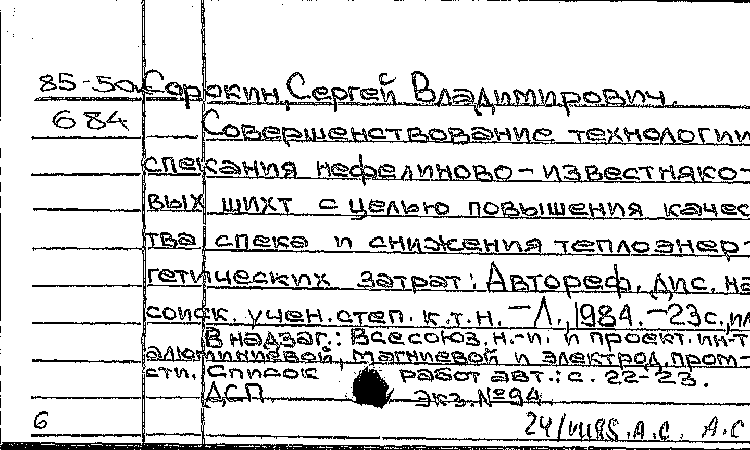 85-50 Сорокин, Сергей Владимирович.
684 Совершенствование технологии
спекания нефелиново-известняко-
вых шихт с целью повышения качес
тва спека и снижения теплоэнер-
гетических затрат: Автореф. дис. на
соиск. учен. степ. к.т.н. - Л., 1984. - 23 с., ил
В надзаг.: Всесоюз. н.-и. и проект. ин-т
алюминиевой, магниевой и электрод. пром-
сти. Список работ авт.: с. 22-23.
ДСП. Экз. № 94.
6 А.С. А.С